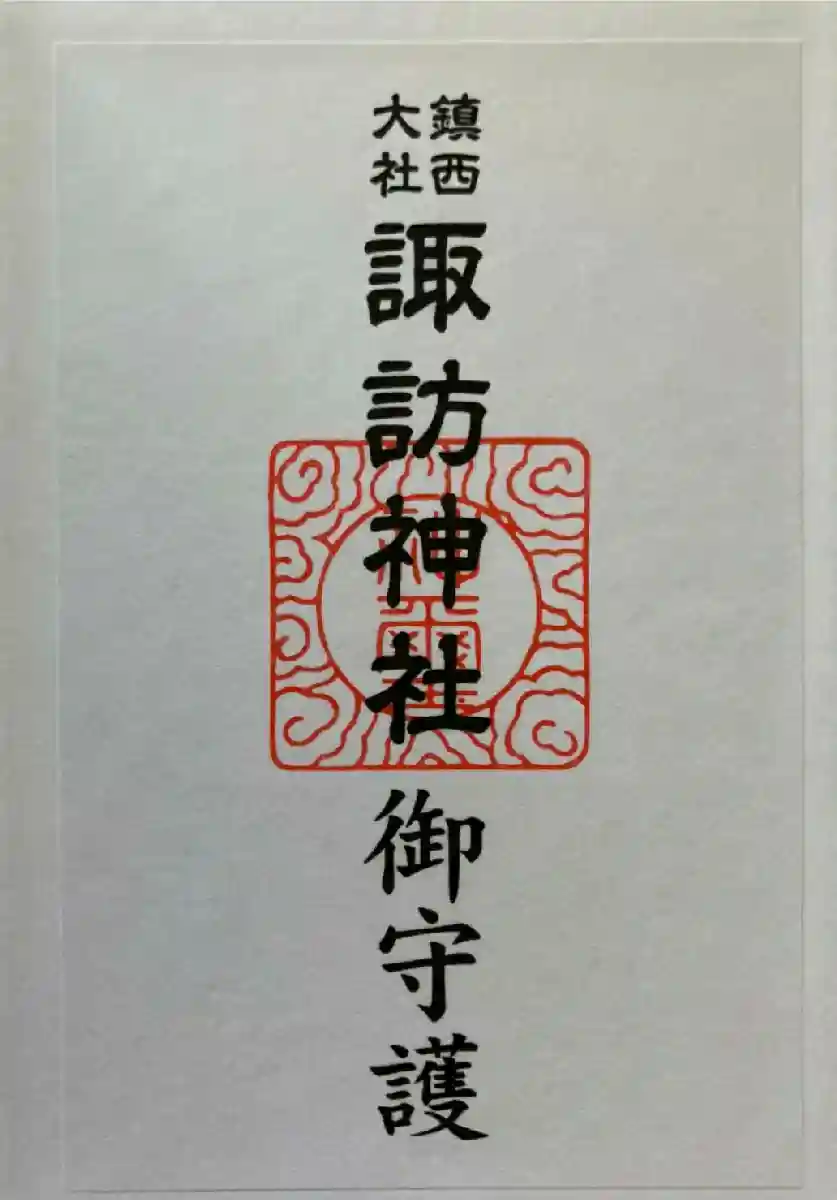 鎮西
大社
諏訪神社
御守護